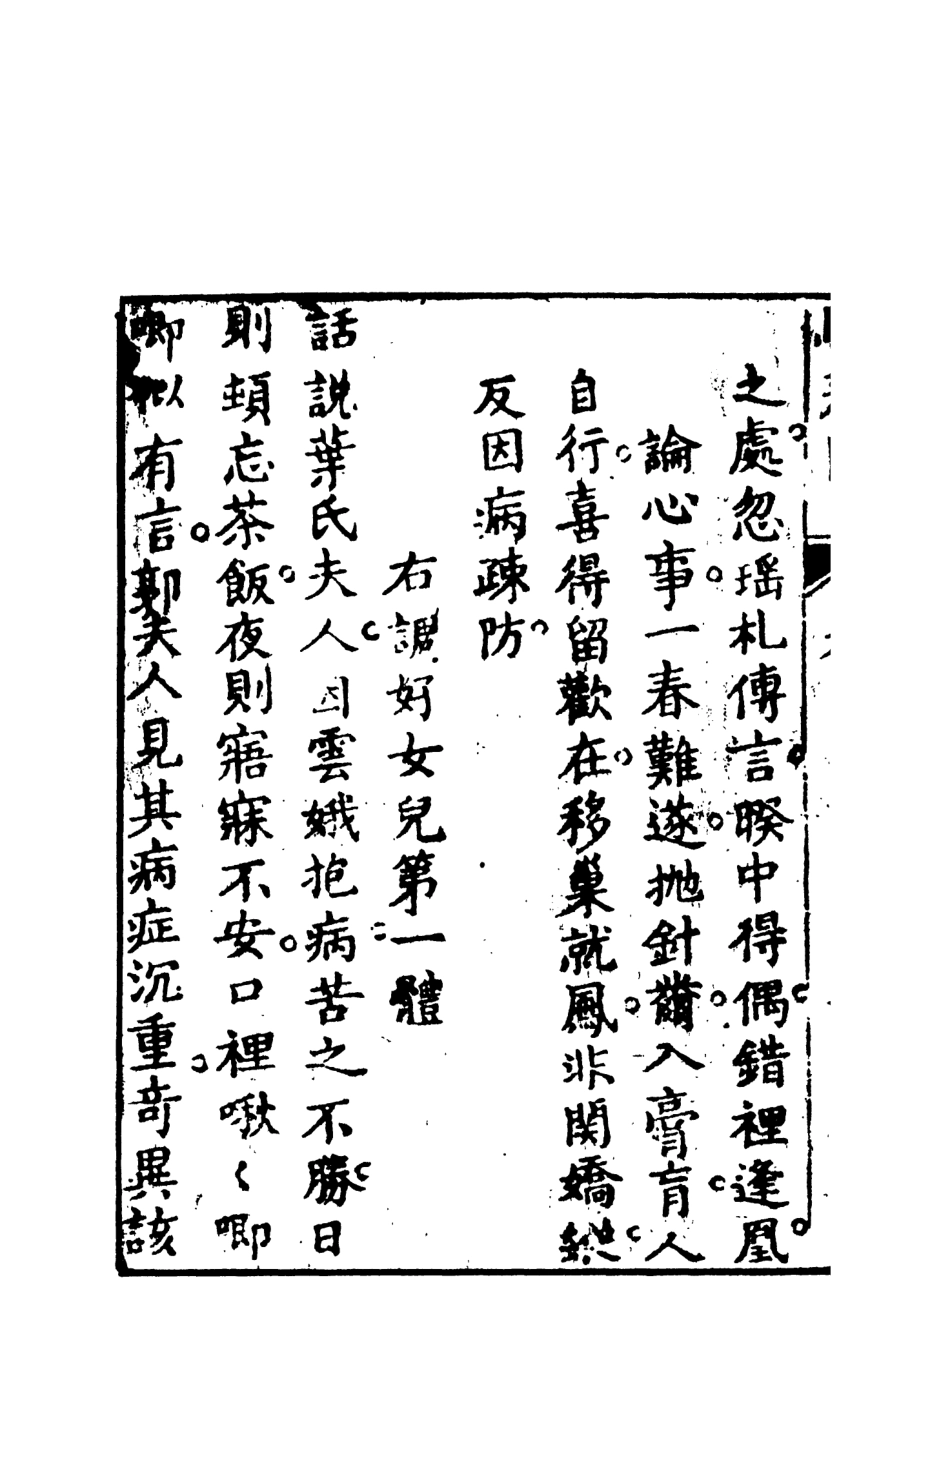 之處忽瑶札傳言暌中得偶錯裡逢凰
論心事一春難遂抛針黹入膏肓人
自行喜得留歡在移巢就鳳非関嬌縱
反因病疎防
右調好女兒第一體
話說葉氏夫人因雲娥抱病苦之不勝日
則頓忘茶飯夜則寤寐不安口裡啾〻唧
唧似有言鄞夫人見其病症沉重奇異該